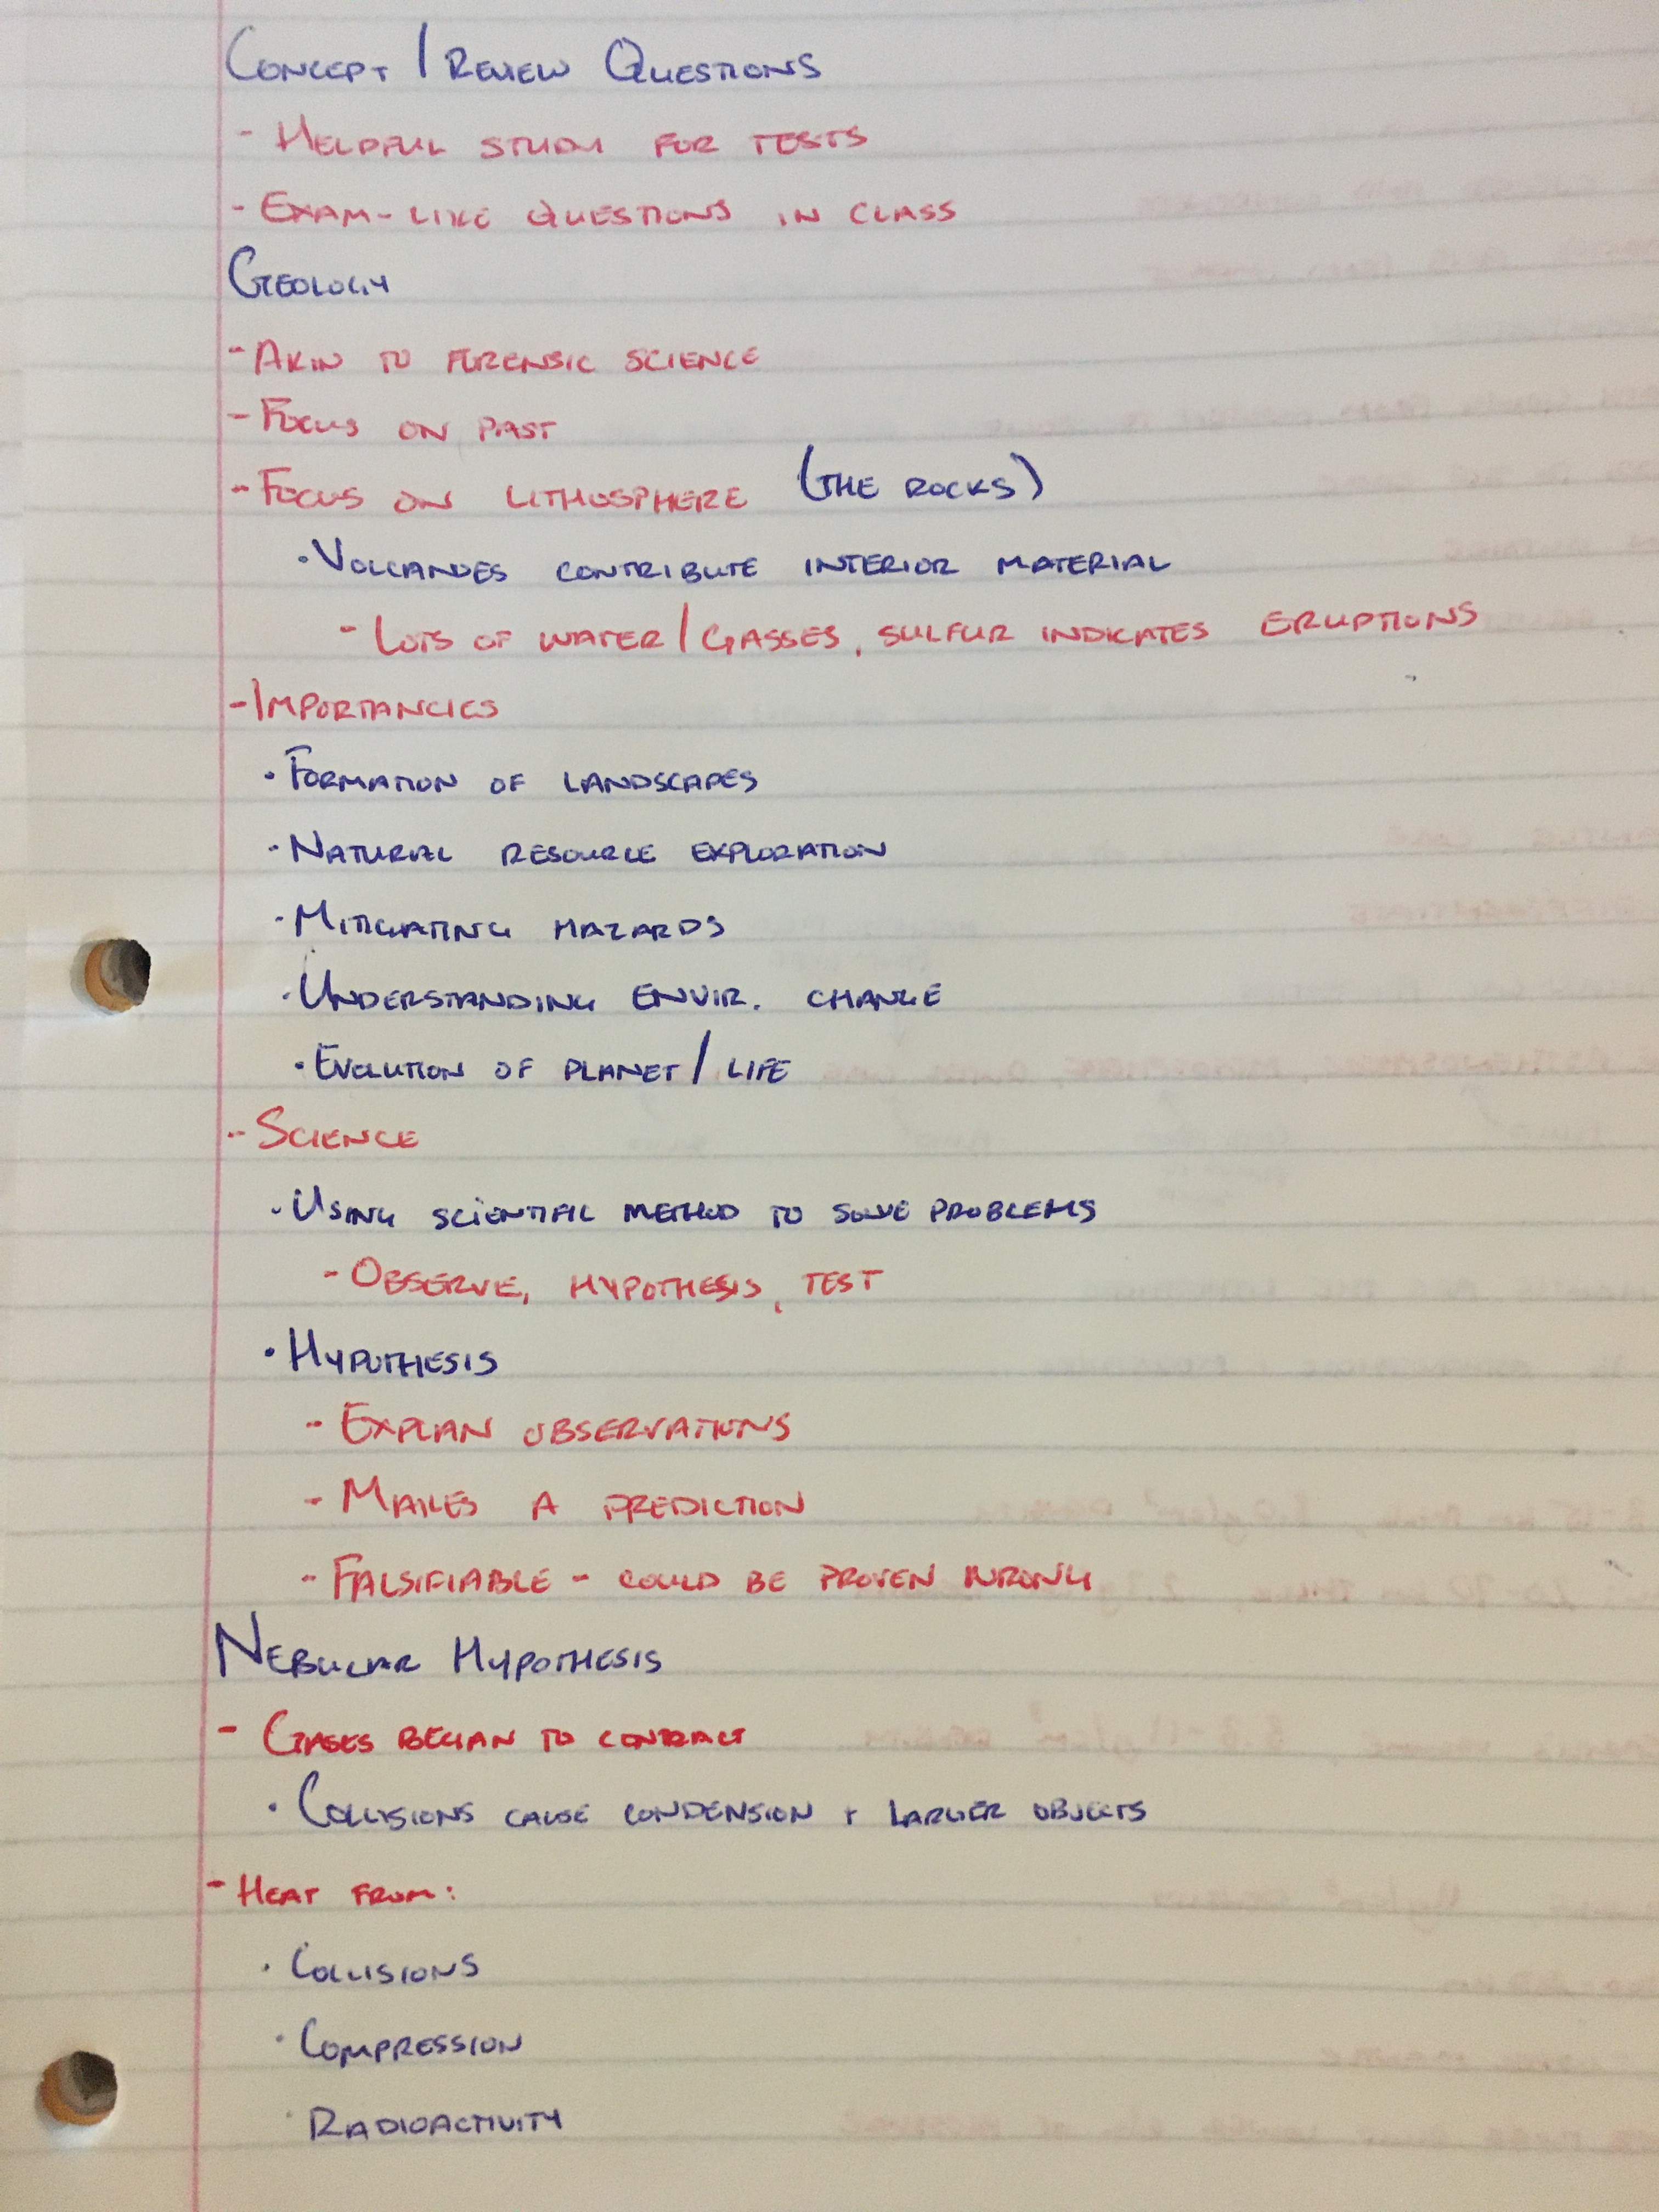 CONCEPT / REVIEW QUESTIONS
- HELPFUL STUDY FOR TESTS
- EXAM-LIKE QUESTIONS IN CLASS
GEOLOGY
- AKIN TO FORENSIC SCIENCE
- FOCUS ON PAST
- FOCUS ON LITHOSPHERE (THE ROCKS)
· VOLCANOES CONTRIBUTE INTERIOR MATERIAL
- LOTS OF WATER/GASSES, SULFUR INDICATES ERUPTIONS
- IMPORTANCIES
· FORMATION OF LANDSCAPES
· NATURAL RESOURCE EXPLORATION
· MITIGATING HAZARDS
· UNDERSTANDING ENVIR. CHANGE
· EVOLUTION OF PLANET / LIFE
- SCIENCE
· USING SCIENTIFIC METHOD TO SOLVE PROBLEMS
- OBSERVE, HYPOTHESIS, TEST
· HYPOTHESIS
- EXPLAIN OBSERVATIONS
- MAKES A PREDICTION
- FALSIFIABLE - COULD BE PROVEN WRONG
NEBULAR HYPOTHESIS
- GASES BEGAN TO CONTRACT
· COLLISIONS CAUSE CONDENSION + LARGER OBJECTS
- HEAT FROM:
· COLLISIONS
· COMPRESSION
· RADIOACTIVITY